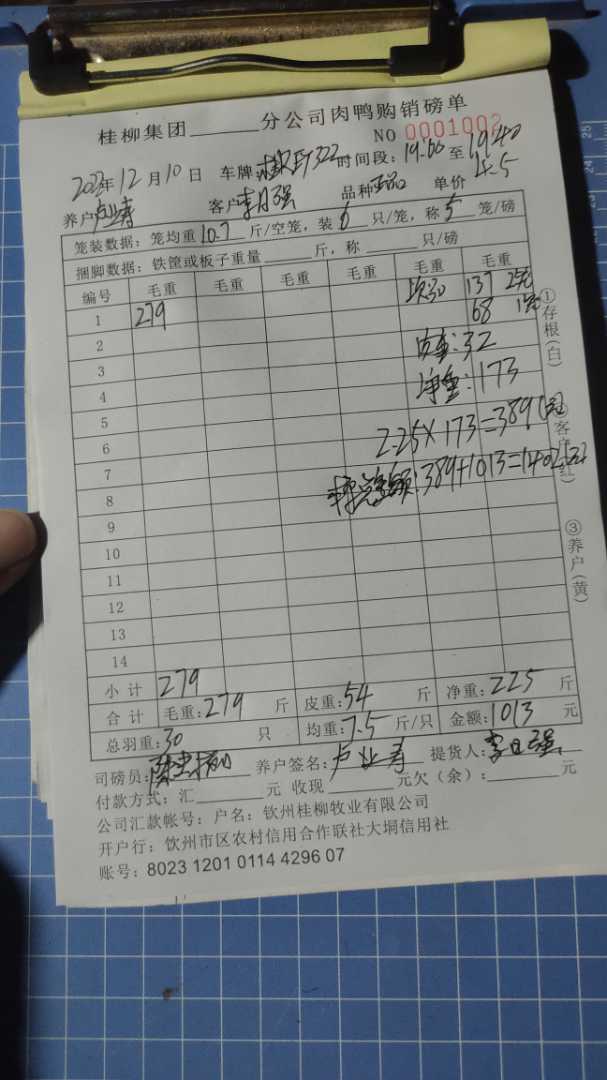 桂柳集团______分公司肉鸭购销磅单
NO 0001002
2023年12月10日 车牌: 322 时间段: 19:00 至 19:40
养户: 卢业寿 客户: 李日强 品种: 正品 单价 4.5
笼装数据: 笼均重 10.7 斤/空笼, 装 6 只/笼, 称 5 笼/磅
捆脚数据: 铁筐或板子重量______斤, 称______只/磅
编号 毛重 毛重 毛重 毛重 毛重 毛重
1 279 次30 137 2笼
2 68 1笼
3 皮重: 32
4 净重: 173
5
6 2.25×173=389元
7 总金额: 389+1013=1402元
8
9
10
11
12
13
14
小计 279
合计 毛重: 279 斤 皮重: 54 斤 净重: 225 斤
总羽重: 30 只 均重: 7.5 斤/只 金额: 1013 元
司磅员: 养户签名: 卢业寿 提货人: 李日强
付款方式: 汇______元 收现______元欠(余): ______元
公司汇款帐号: 户名: 钦州桂柳牧业有限公司
开户行: 钦州市区农村信用合作联社大垌信用社
账号: 8023 1201 0114 4296 07
①存根(白)
②客户(红)
③养户(黄)